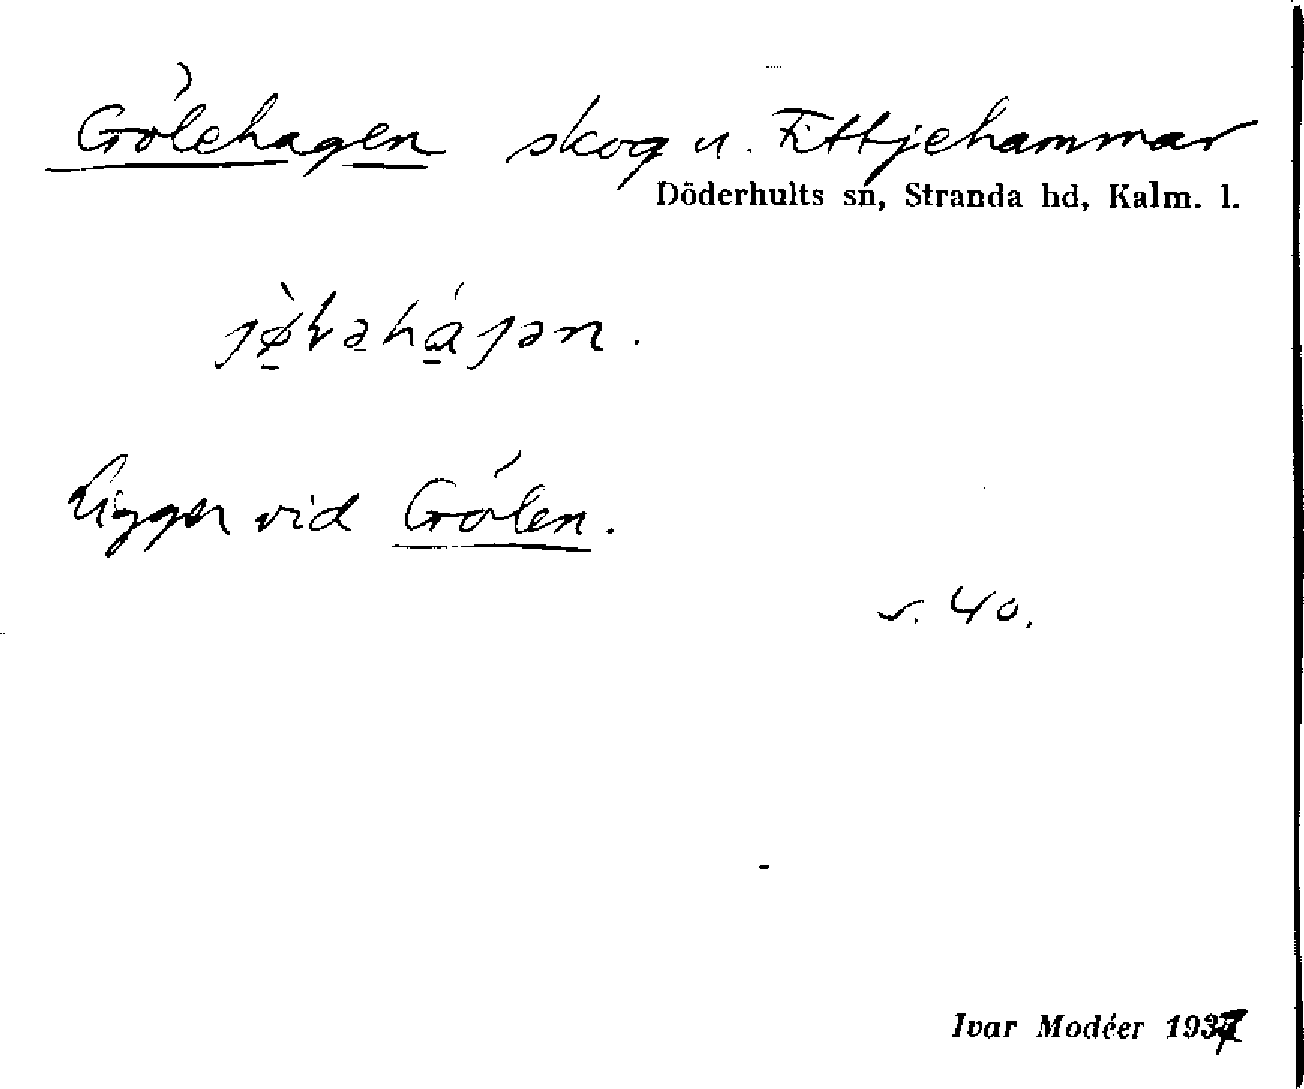 Gölehagen skog u. Fittjehammar
Döderhults sn, Stranda hd, Kalm. l.
Ligger vid Gölen.
s. 40.
Ivar Modéer 1937